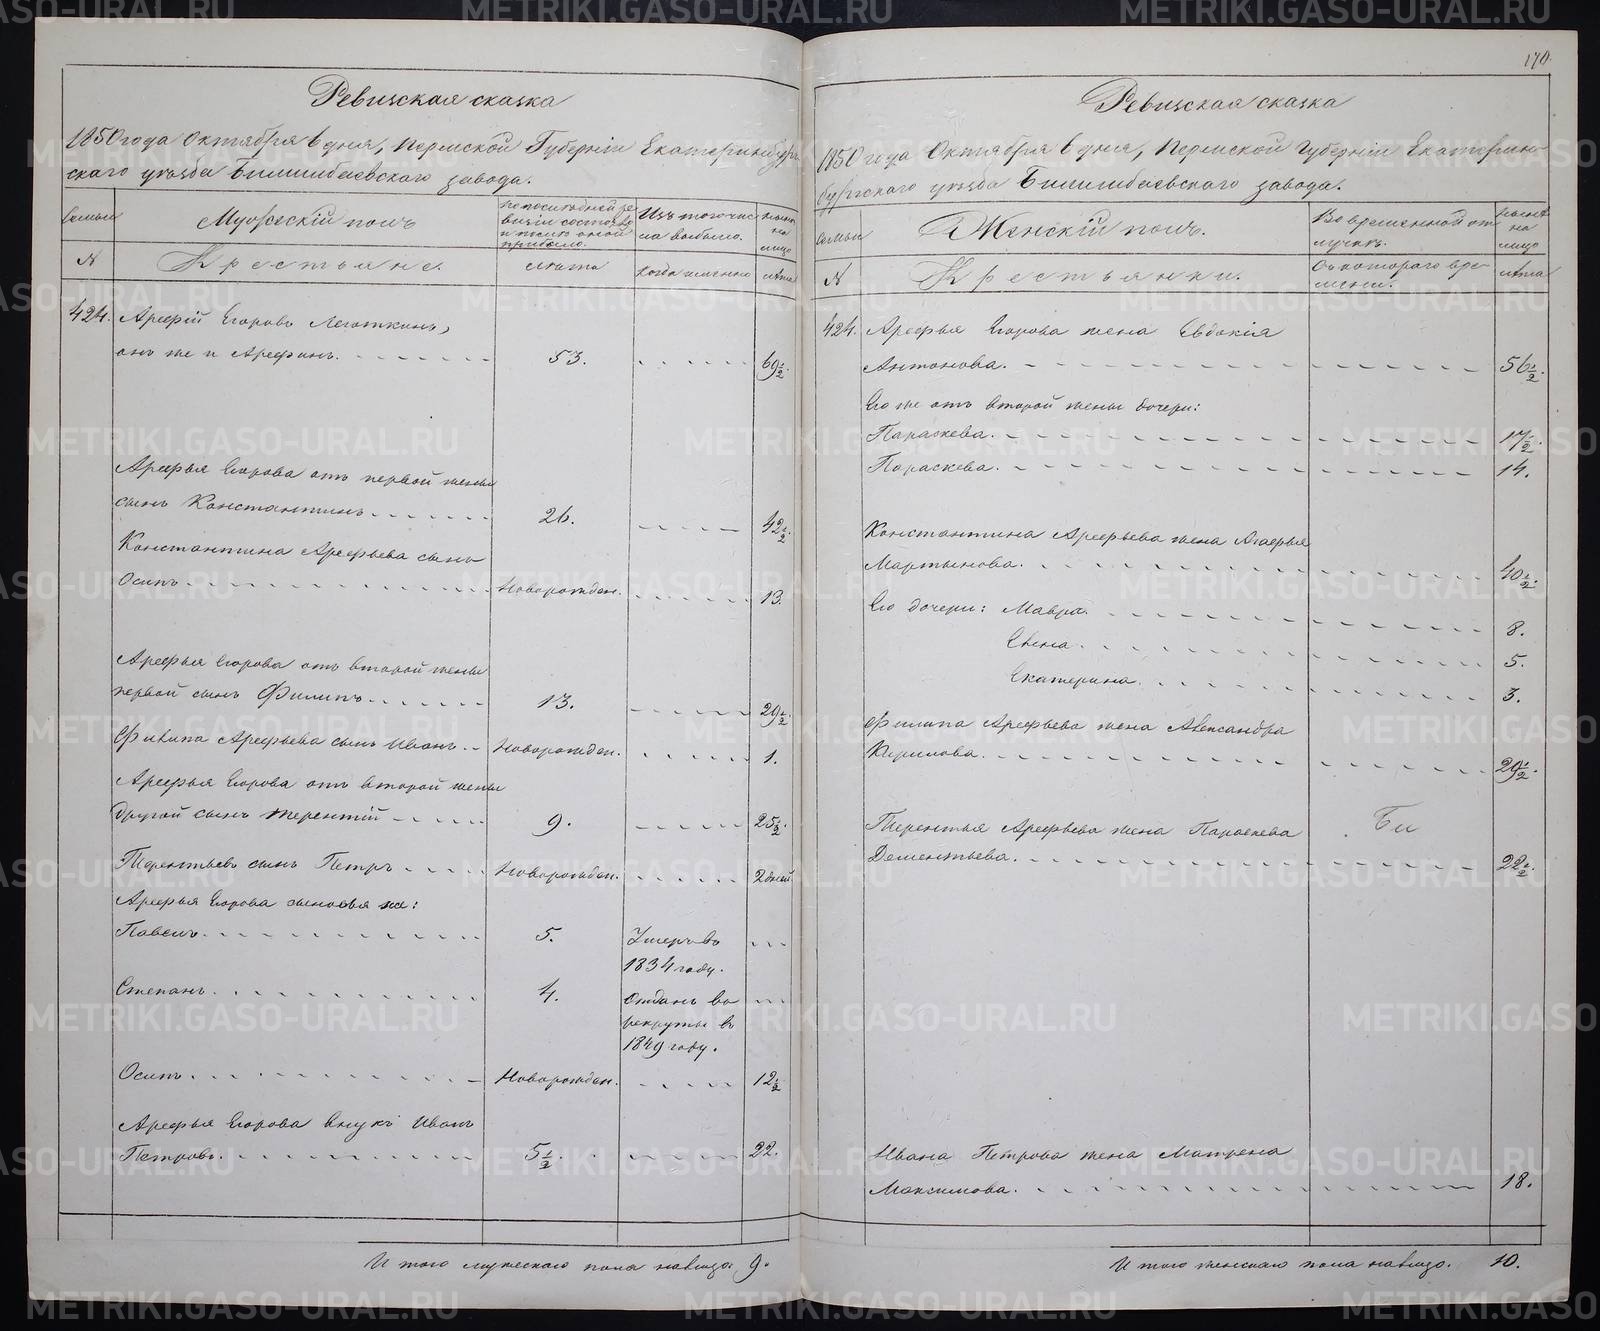 Ревизская сказка
1850 года Октября 6 дня, Пермской Губернiи Екатеринбург-
скаго уѣзда Билимбаевскаго завода.
Семьи
Мужескiй полъ
По последней ре-
визiи состояло
и после оной
прибыло.
Изъ того числа
выбыло.
Ныне
на
лицо
№
Крестьяне.
Лѣта
Когда именно
лѣта
424. Арефiй Егоровъ Леготкинъ,
онъ же и Арефинъ. 53. 69½.
Арефья Егорова отъ первой жены
сынъ Константинъ 26. 42½.
Константина Арефьева сынъ
Осипъ Новорожден. 13.
Арефья Егорова отъ второй жены
первой сынъ Филипъ 13. 29½.
Филипа Арефьева сынъ Иванъ Новорожден. 1.
Арефья Егорова отъ второй жены
другой сынъ Терентiй 9. 25½.
Терентьевъ сынъ Петръ Новорожден. 2 дней
Арефья Егорова сыновья же:
Павелъ. 5. Умеръ въ
1834 году.
Степанъ. 4. Отданъ въ
рекруты въ
1849 году.
Осипъ. Новорожден. 12½
Арефья Егорова внукъ Иванъ
Петровъ. 5½. 22.
Итого мужескаго пола налицо. 9.
170.
Ревизская сказка
1850 года Октября 6 дня, Пермской Губернiи Екатерин-
бургскаго уѣзда Билимбаевскаго завода.
Семьи
Женскiй полъ.
Во временной от-
лучкѣ.
Ныне
на
лицо
№
Крестьянки.
Съ котораго вре-
мени.
лѣта
424. Арефья Егорова жена Евдокiя
Антонова. 56½.
Его же отъ второй жены дочери:
Параскева. 17½.
Параскева. 14.
Константина Арефьева жена Агафья
Мартынова. 40½.
Его дочери: Мавра. 8.
Елена. 5.
Екатерина. 3.
Филипа Арефьева жена Александра
Кирилова. 29½.
Терентья Арефьева жена Параскева Би
Дементьева. 22½.
Ивана Петрова жена Матрена
Максимова. 18.
Итого женскаго пола налицо. 10.
METRIKI.GASO-URAL.RU